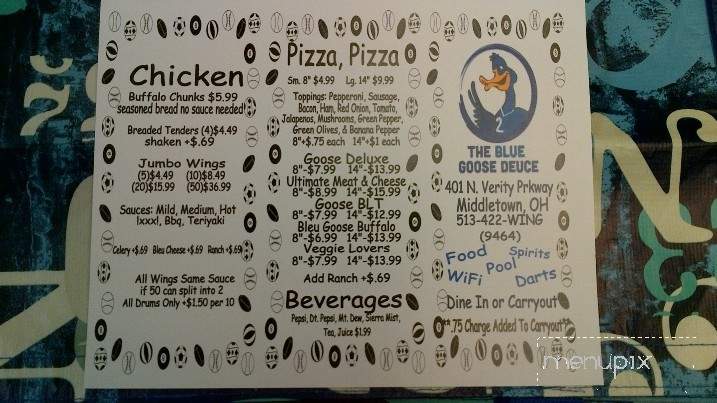 Chicken
Buffalo Chunks $5.99
seasoned bread no sauce needed!
Breaded Tenders (4)$4.49
shaken +$.69
Jumbo Wings
(5)$4.49 (10)$8.49
(20)$15.99 (50)$36.99
Sauces: Mild, Medium, Hot
!xxx!, Bbq, Teriyaki
Celery +$.69 Bleu Cheese +$.69 Ranch +$.69
All Wings Same Sauce
if 50 can split into 2
All Drums Only +$1.50 per 10
Pizza, Pizza
Sm. 8" $4.99 Lg. 14" $9.99
Toppings: Pepperoni, Sausage,
Bacon, Ham, Red Onion, Tomato,
Jalapenos, Mushrooms, Green Pepper,
Green Olives, & Banana Pepper
8"+$.75 each 14"+$1 each
Goose Deluxe
8"-$7.99 14"-$13.99
Ultimate Meat & Cheese
8"-$8.99 14"-$15.99
Goose BLT
8"-$7.99 14"-$12.99
Bleu Goose Buffalo
8"-$6.99 14"-$13.99
Veggie Lovers
8"-$7.99 14"-$13.99
Add Ranch +$.69
Beverages
Pepsi, Dt. Pepsi, Mt. Dew, Sierra Mist,
Tea, Juice $1.99
2
THE BLUE
GOOSE DEUCE
401 N. Verity Prkway
Middletown, OH
513-422-WING
(9464)
Food Spirits
Pool
WiFi Darts
Dine In or Carryout
**.75 Charge Added To Carryout**
menupix